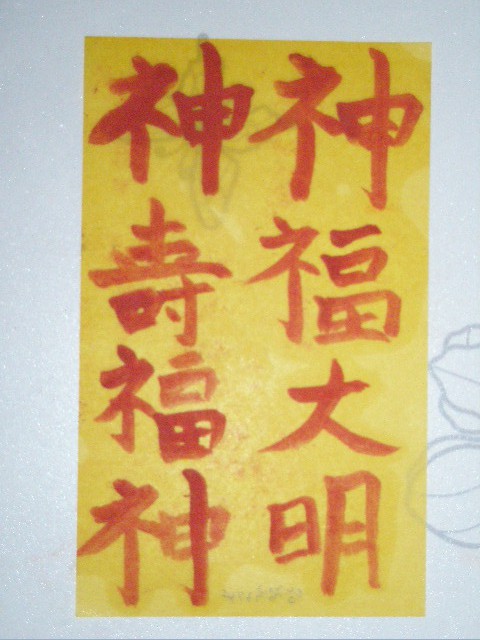 神福大明
神壽福神